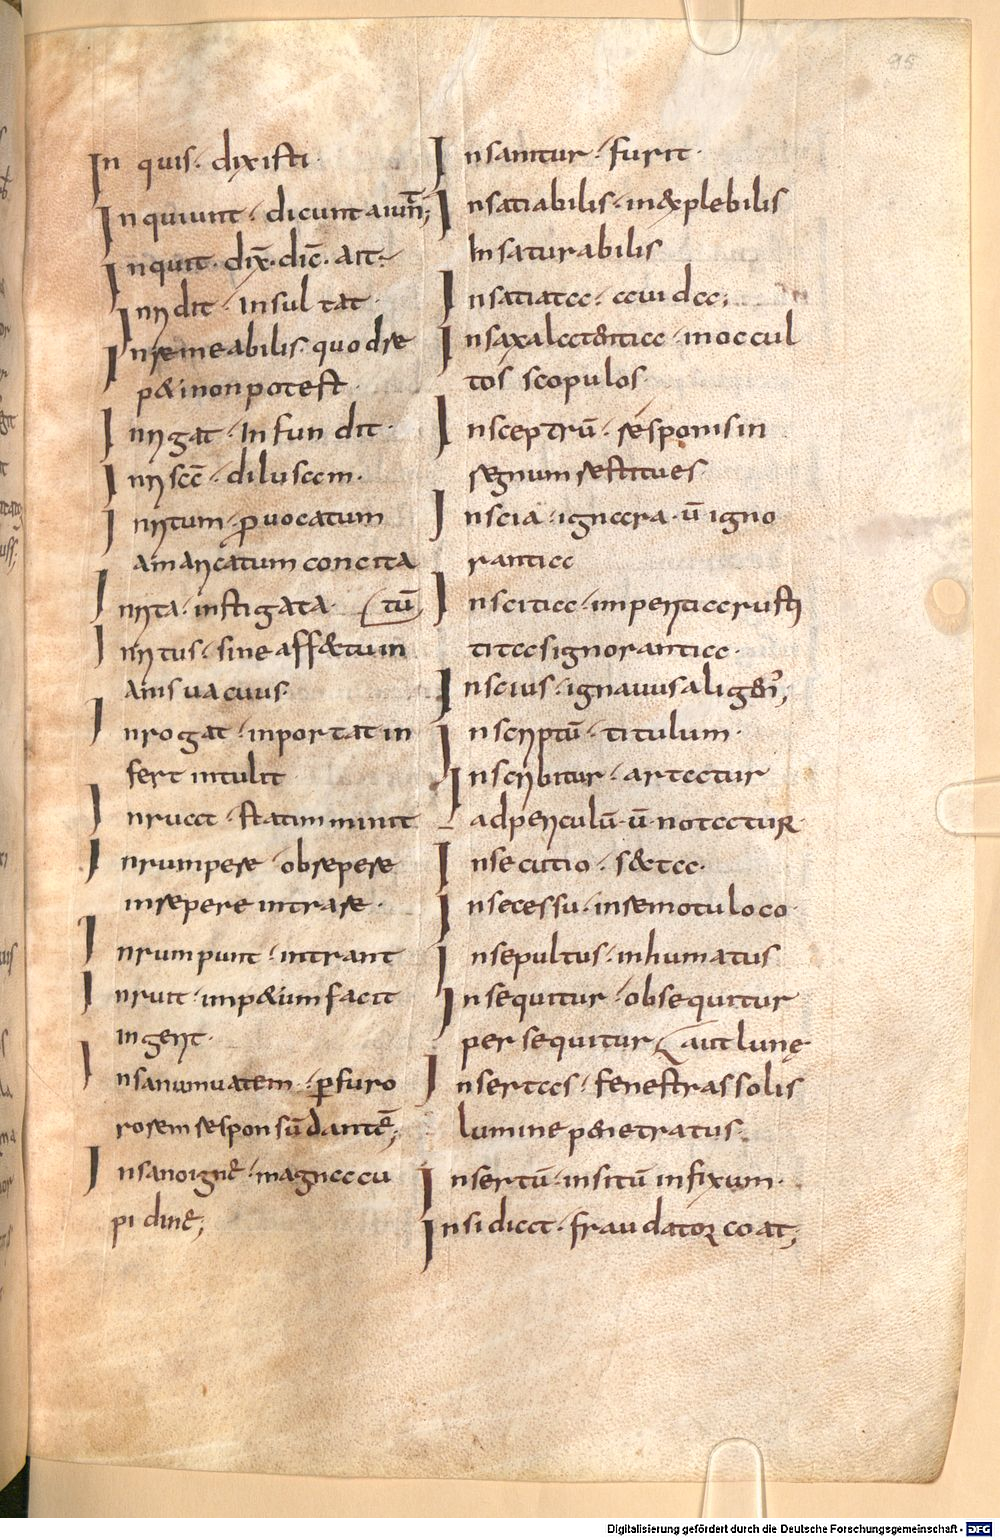 95
In quis · dixisti ·
Inquiunt · dicunt aiunt;
Inquit · dix̄ · dic̄ · ait ·
Inridit · insultat ·
Inremeabilis · quod re
p&inonpotest ·
Inrigat · infundit ·
Inriscē · diluscem ·
Inritum · ꝓuocatum
amaricatum concita
tū
Inrita · instigata ·
Inritus · sine aff&tu in
anis uacuus ·
Inrogat · inportat in
fert intulit
Inruat · statim minat
Inrumpere · obrepere
inrepere intrare ·
Inrumpunt · intrant
Inruit · imp&um facit
ingerit ·
Insanum uatem · ꝑfuro
rorem responsū dantē;
Insano ignē · magna cu
pidinē;
Insanitur · furit ·
Insatiabilis · in&plebilis
Insaturabilis
Insatiata · auida;
Insaxa latentia · in occul
tos scopulos
Insceptrū · responis in
regnum restitues
Inscia · ignara · ū igno
rantia
Inscitia · imperitia rusti
titas ignorantia ·
Inscius · ignauus aligen̄;
Inscriptū · titulum ·
Inscribitur · artatur
ad periculū · ū · notatur
Insecutio · s&ta ·
Insecessu · in semotu loco ·
Insepultus · inhumatus
Insequitur · obsequitur
persequitur
aut lunę
Insertas · fenestras solis
lumine penetratus ·
Insertū · insitū infixum ·
Insidiat · fraudator coat;
Digitalisierung gefördert durch die Deutsche Forschungsgemeinschaft - DFG